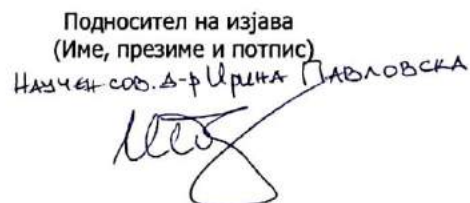 Подносител на изјава
(Име, презиме и потпис)
Научен сов. д-р Ирена Павловска